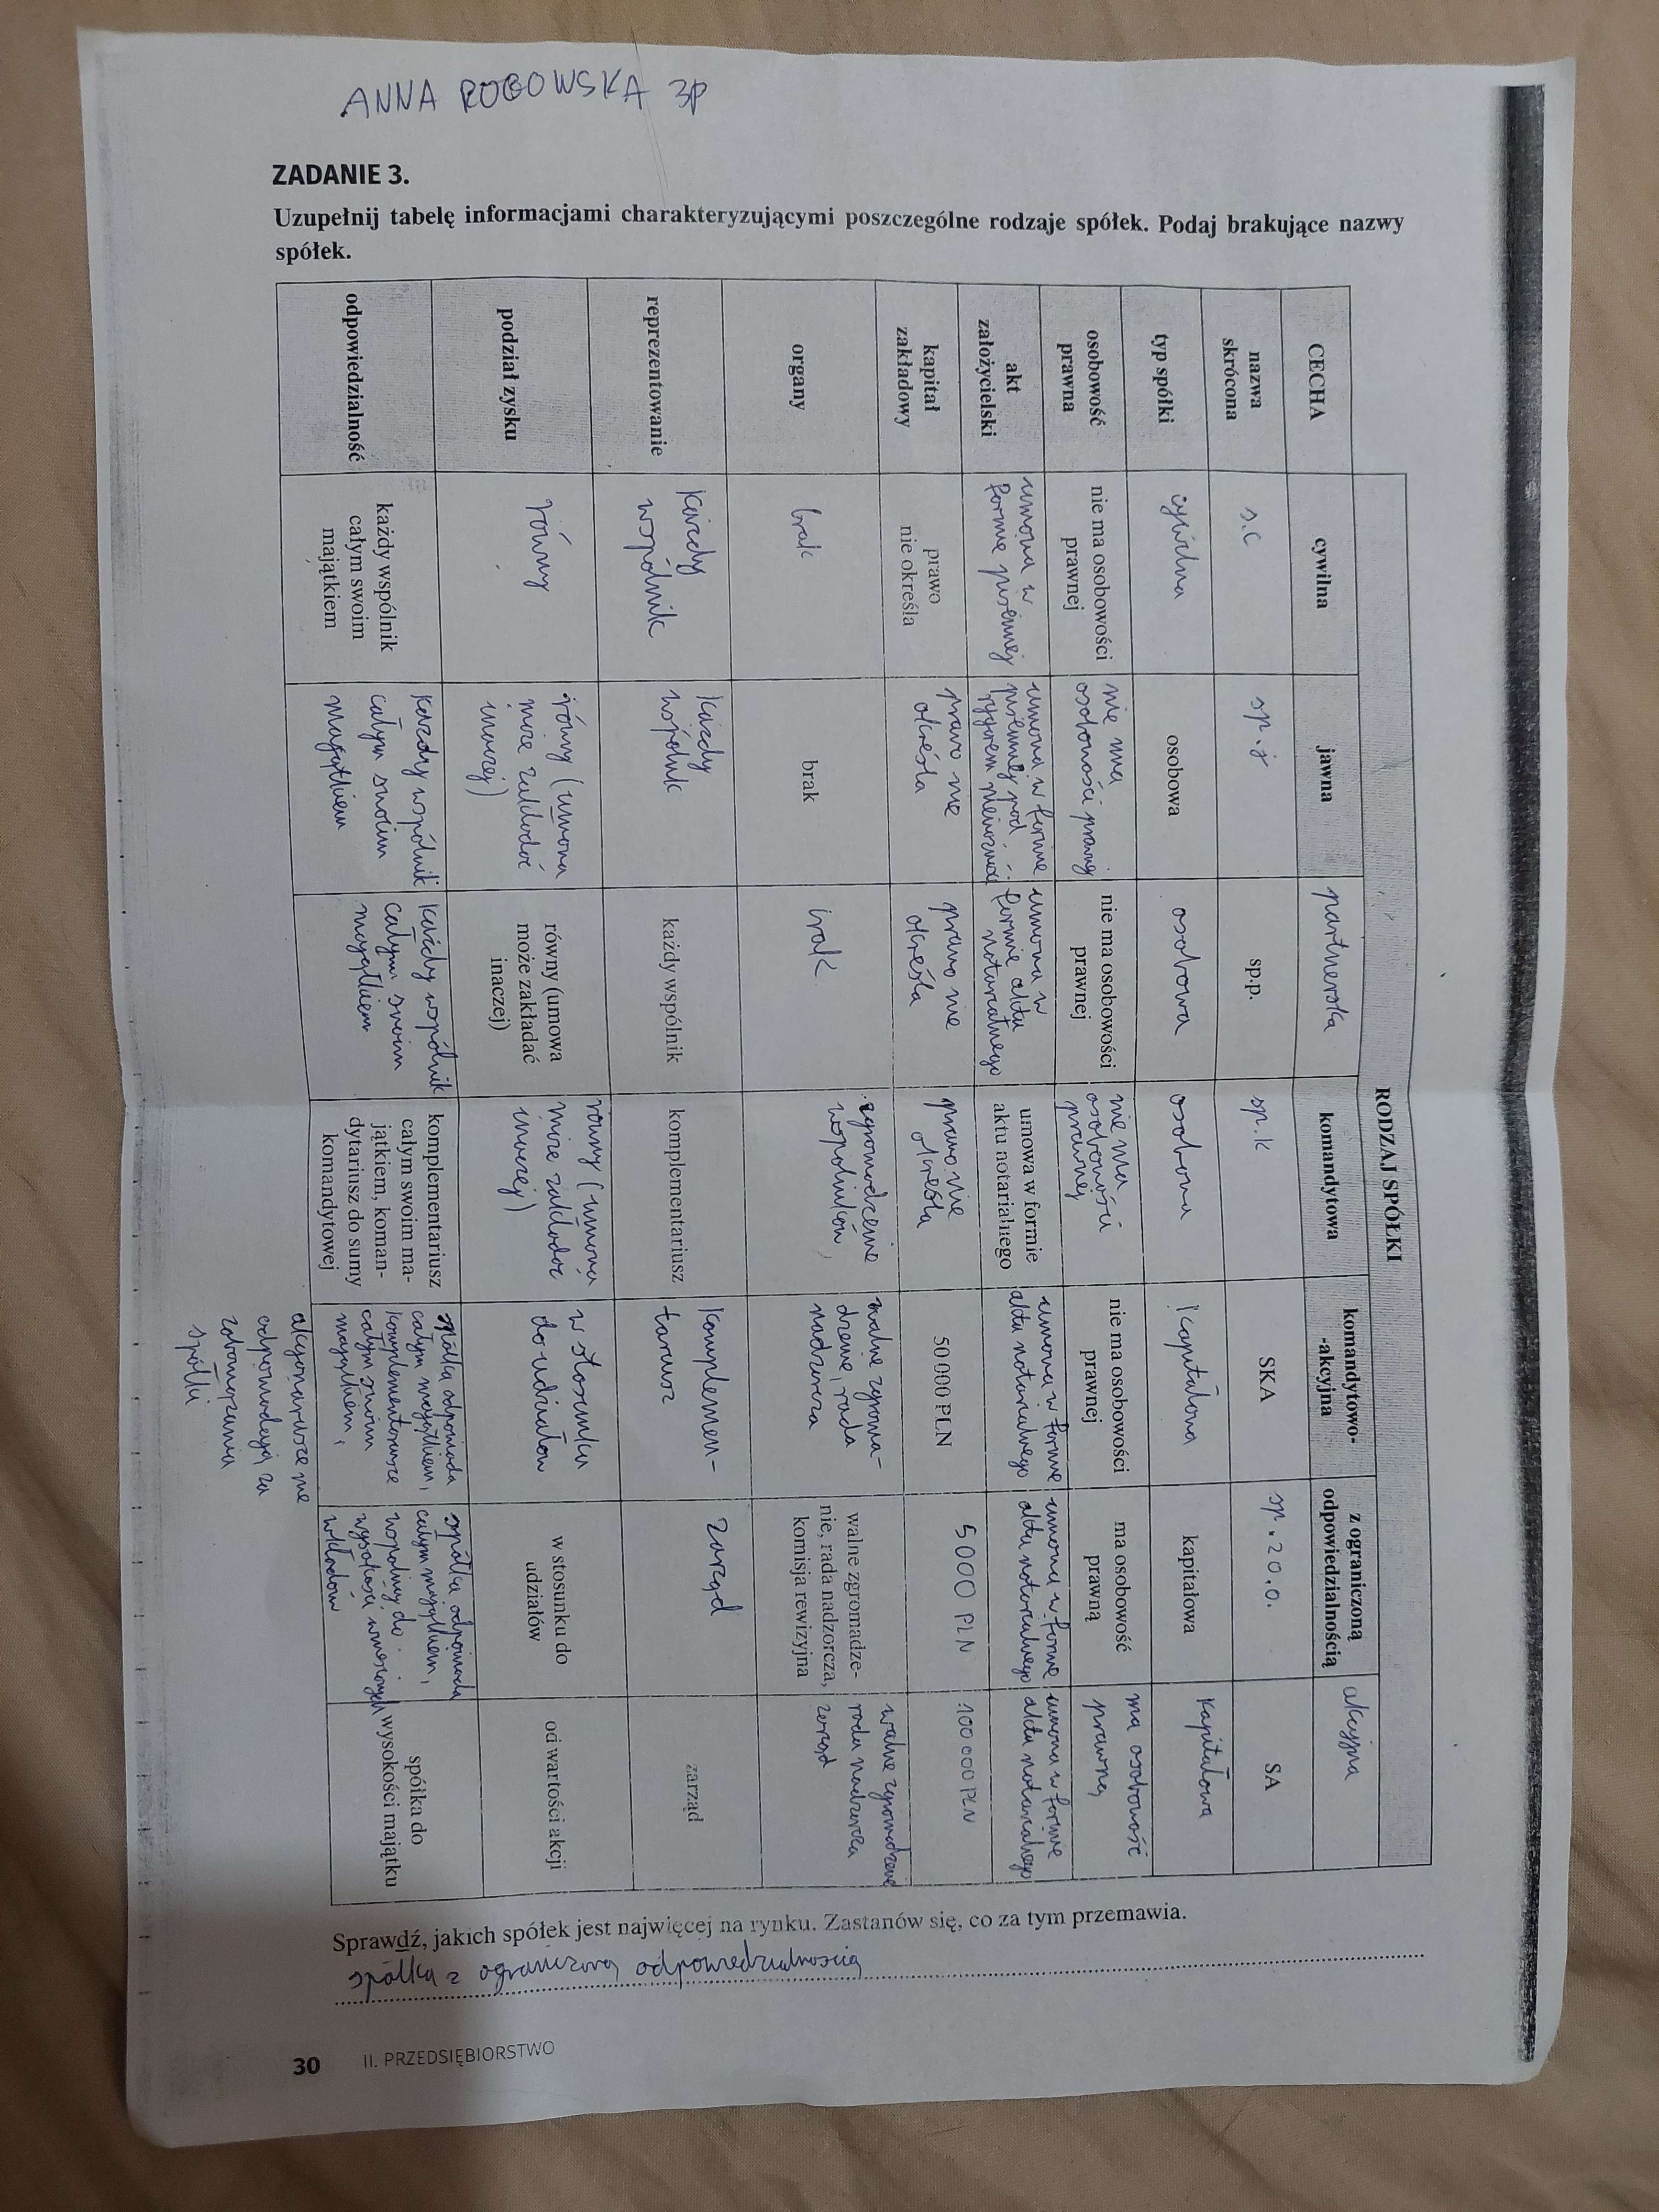 ANNA ROGOWSKA 3P
ZADANIE 3.
Uzupełnij tabelę informacjami charakteryzującymi poszczególne rodzaje spółek. Podaj brakujące nazwy
spółek.
RODZAJ SPÓŁKI
CECHA
cywilna
jawna
partnerska
komandytowa
komandytowo-
-akcyjna
z ograniczoną
odpowiedzialnością
akcyjna
nazwa
skrócona
s.c
sp.j
sp.p.
sp.k
SKA
sp. z o.o.
SA
typ spółki
cywilna
osobowa
osobowa
osobowa
kapitałowa
kapitałowa
kapitałowa
osobowość
prawna
nie ma osobowości
prawnej
nie ma
osobowości prawnej
nie ma osobowości
prawnej
nie ma
osobowości
prawnej
nie ma osobowości
prawnej
ma osobowość
prawną
ma osobowość
prawną
akt
założycielski
umowa w
formie pisemnej
umowa w formie
pisemnej pod
rygorem nieważności
umowa w
formie aktu
notarialnego
umowa w formie
aktu notarialnego
umowa w formie
aktu notarialnego
umowa w formie
aktu notarialnego
umowa w formie
aktu notarialnego
kapitał
zakładowy
prawo
nie określa
prawo nie
określa
prawo nie
określa
prawo nie
określa
50 000 PLN
5000 PLN
100 000 PLN
organy
brak
brak
brak
zgromadzenie
wspólników,
walne zgroma-
dzenie, rada
nadzorcza
walne zgromadze-
nie, rada nadzorcza,
komisja rewizyjna
walne zgromadzenie
rada nadzorcza
zarząd
reprezentowanie
Każdy
wspólnik
Każdy
wspólnik
każdy wspólnik
komplementariusz
Komplemen-
tariusz
zarząd
zarząd
podział zysku
równy
równy (umowa
może zakładać
inaczej)
równy (umowa
może zakładać
inaczej)
równy (umowa
może zakładać
inaczej)
w stosunku
do udziałów
w stosunku do
udziałów
od wartości akcji
odpowiedzialność
każdy wspólnik
całym swoim
majątkiem
Każdy wspólnik
całym swoim
majątkiem
Każdy wspólnik
całym swoim
majątkiem
komplementariusz
całym swoim ma-
jątkiem, koman-
dytariusz do sumy
komandytowej
spółka odpowiada
całym majątkiem,
komplementariusze
całym swoim
majątkiem,
akcjonariusze nie
odpowiadają za
zobowiązania
spółki
spółka odpowiada
całym majątkiem,
wspólnicy do
wysokości wniesionych
wkładów
spółka do
wysokości majątku
Sprawdź, jakich spółek jest najwięcej na rynku. Zastanów się, co za tym przemawia.
spółka z ograniczoną odpowiedzialnością
30 II. PRZEDSIĘBIORSTWO